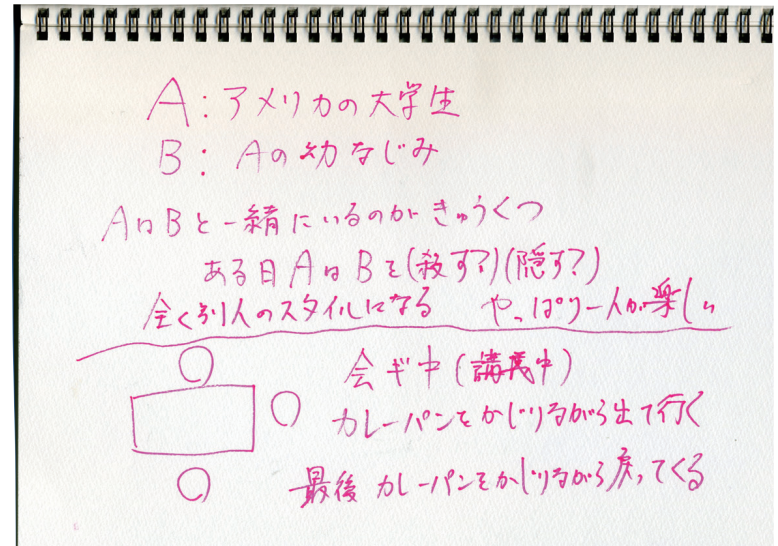 A：アメリカの大学生
B：Aの幼なじみ
AはBと一緒にいるのがきゅうくつ
ある日AはBを(殺す?)(隠す?)
全く別人のスタイルになる　やっぱり一人が楽しい
会ギ中(講義中)
カレーパンをかじりながら出て行く
最後カレーパンをかじりながら戻ってくる